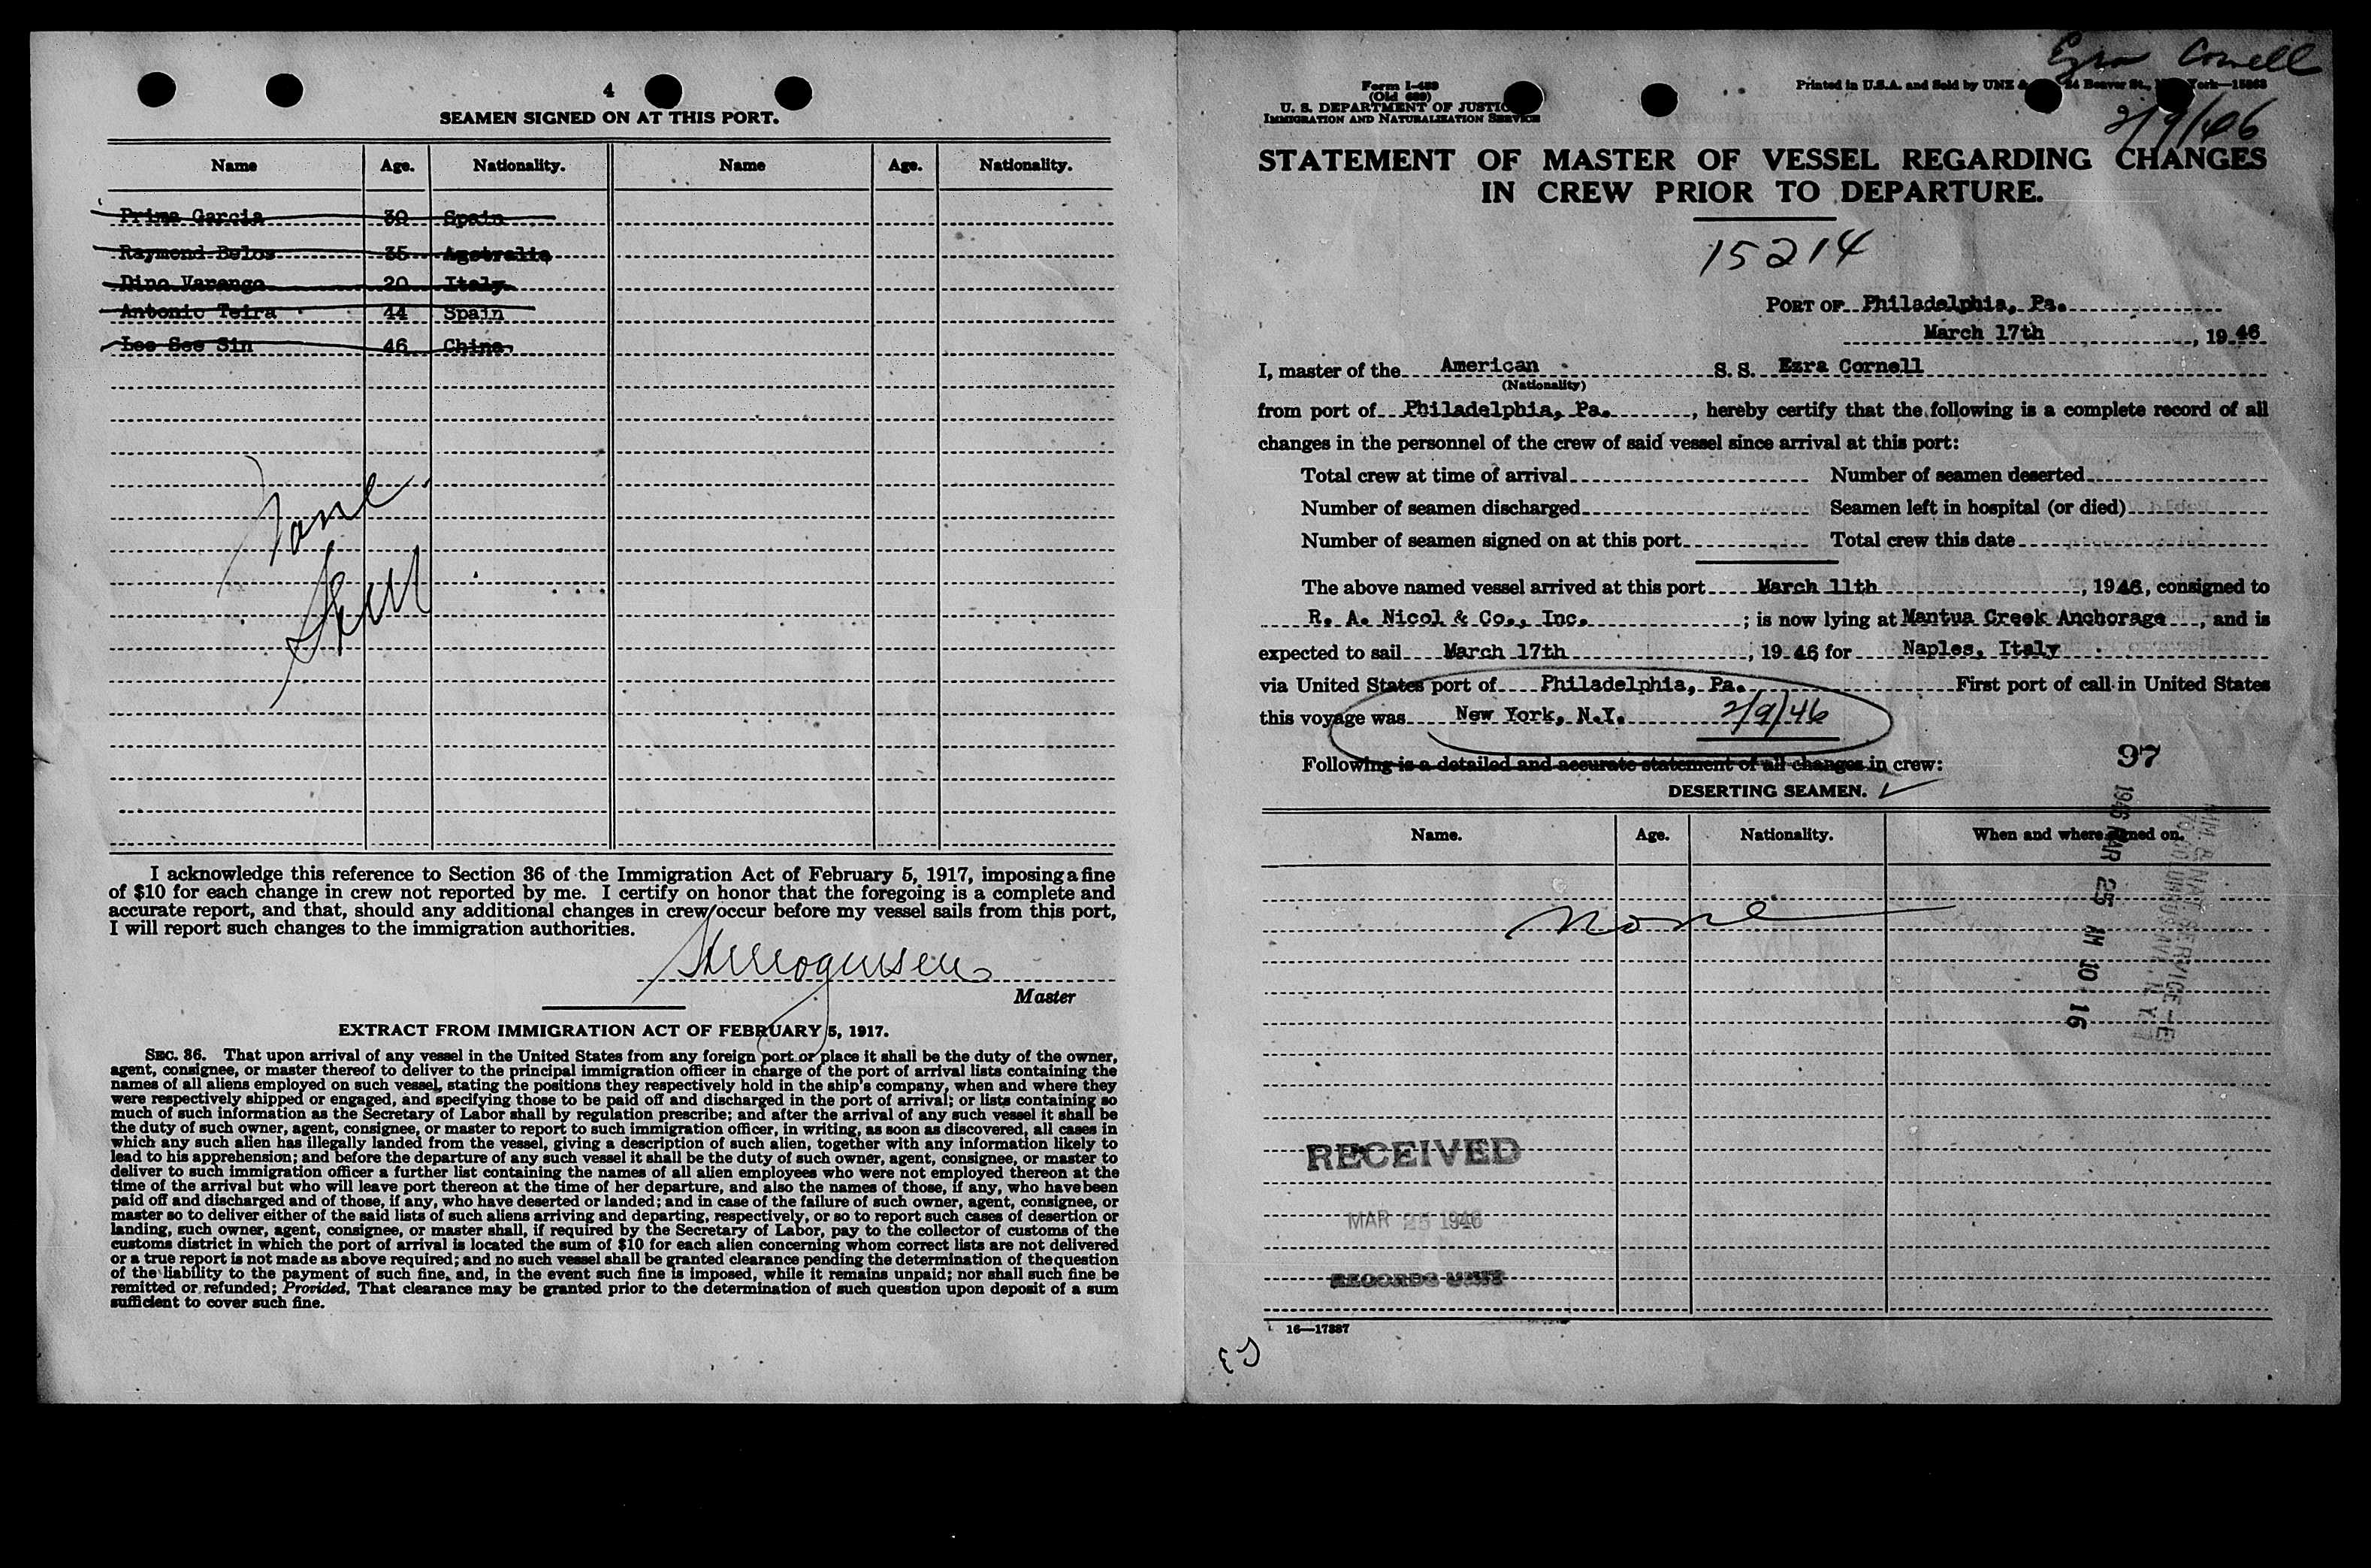 4
SEAMEN SIGNED ON AT THIS PORT.
Name Age. Nationality. Name Age. Nationality.
Prima Garcia 30 Spain
Raymond Belos 35 Agstralia
Dino Varengo 20 Italy
Antonio Teira 44 Spain
Lee See Sin 46 China
None
I acknowledge this reference to Section 36 of the Immigration Act of February 5, 1917, imposing a fine
of $10 for each change in crew not reported by me. I certify on honor that the foregoing is a complete and
accurate report, and that, should any additional changes in crew occur before my vessel sails from this port,
I will report such changes to the immigration authorities.
Master
EXTRACT FROM IMMIGRATION ACT OF FEBRUARY 5, 1917.
SEC. 36. That upon arrival of any vessel in the United States from any foreign port or place it shall be the duty of the owner,
agent, consignee, or master thereof to deliver to the principal immigration officer in charge of the port of arrival lists containing the
names of all aliens employed on such vessel, stating the positions they respectively hold in the ship's company, when and where they
were respectively shipped or engaged, and specifying those to be paid off and discharged in the port of arrival; or lists containing so
much of such information as the Secretary of Labor shall by regulation prescribe; and after the arrival of any such vessel it shall be
the duty of such owner, agent, consignee, or master to report to such immigration officer, in writing, as soon as discovered, all cases in
which any such alien has illegally landed from the vessel, giving a description of such alien, together with any information likely to
lead to his apprehension; and before the departure of any such vessel it shall be the duty of such owner, agent, consignee, or master to
deliver to such immigration officer a further list containing the names of all alien employees who were not employed thereon at the
time of the arrival but who will leave port thereon at the time of her departure, and also the names of those, if any, who have been
paid off and discharged and of those, if any, who have deserted or landed; and in case of the failure of such owner, agent, consignee, or
master so to deliver either of the said lists of such aliens arriving and departing, respectively, or so to report such cases of desertion or
landing, such owner, agent, consignee, or master shall, if required by the Secretary of Labor, pay to the collector of customs of the
customs district in which the port of arrival is located the sum of $10 for each alien concerning whom correct lists are not delivered
or a true report is not made as above required; and no such vessel shall be granted clearance pending the determination of the question
of the liability to the payment of such fine, and, in the event such fine is imposed, while it remains unpaid; nor shall such fine be
remitted or refunded; Provided, That clearance may be granted prior to the determination of such question upon deposit of a sum
sufficient to cover such fine.
Ezra Cornell
2/9/46
Form I-489
(Old 689)
U. S. DEPARTMENT OF JUSTICE
IMMIGRATION AND NATURALIZATION SERVICE
Printed in U.S.A. and Sold by UNZ & 24 Beaver St., York—15863
STATEMENT OF MASTER OF VESSEL REGARDING CHANGES
IN CREW PRIOR TO DEPARTURE.
15214
PORT OF Philadelphia, Pa.
March 17th, 1946
I, master of the American S. S. Ezra Cornell
(Nationality)
from port of Philadelphia, Pa., hereby certify that the following is a complete record of all
changes in the personnel of the crew of said vessel since arrival at this port:
Total crew at time of arrival Number of seamen deserted
Number of seamen discharged Seamen left in hospital (or died)
Number of seamen signed on at this port Total crew this date
The above named vessel arrived at this port March 11th, 1946, consigned to
R. A. Nicol & Co., Inc.; is now lying at Mantua Creek Anchorage, and is
expected to sail March 17th, 1946 for Naples, Italy
via United States port of Philadelphia, Pa. First port of call in United States
this voyage was New York, N.Y. 2/9/46
Following is a detailed and accurate statement of all changes in crew:
97
DESERTING SEAMEN.
Name. Age. Nationality. When and where signed on.
None
1946 MAR 25 AM 10 16
RECEIVED
MAR 25 1946
RECORDS UNIT
16—17887